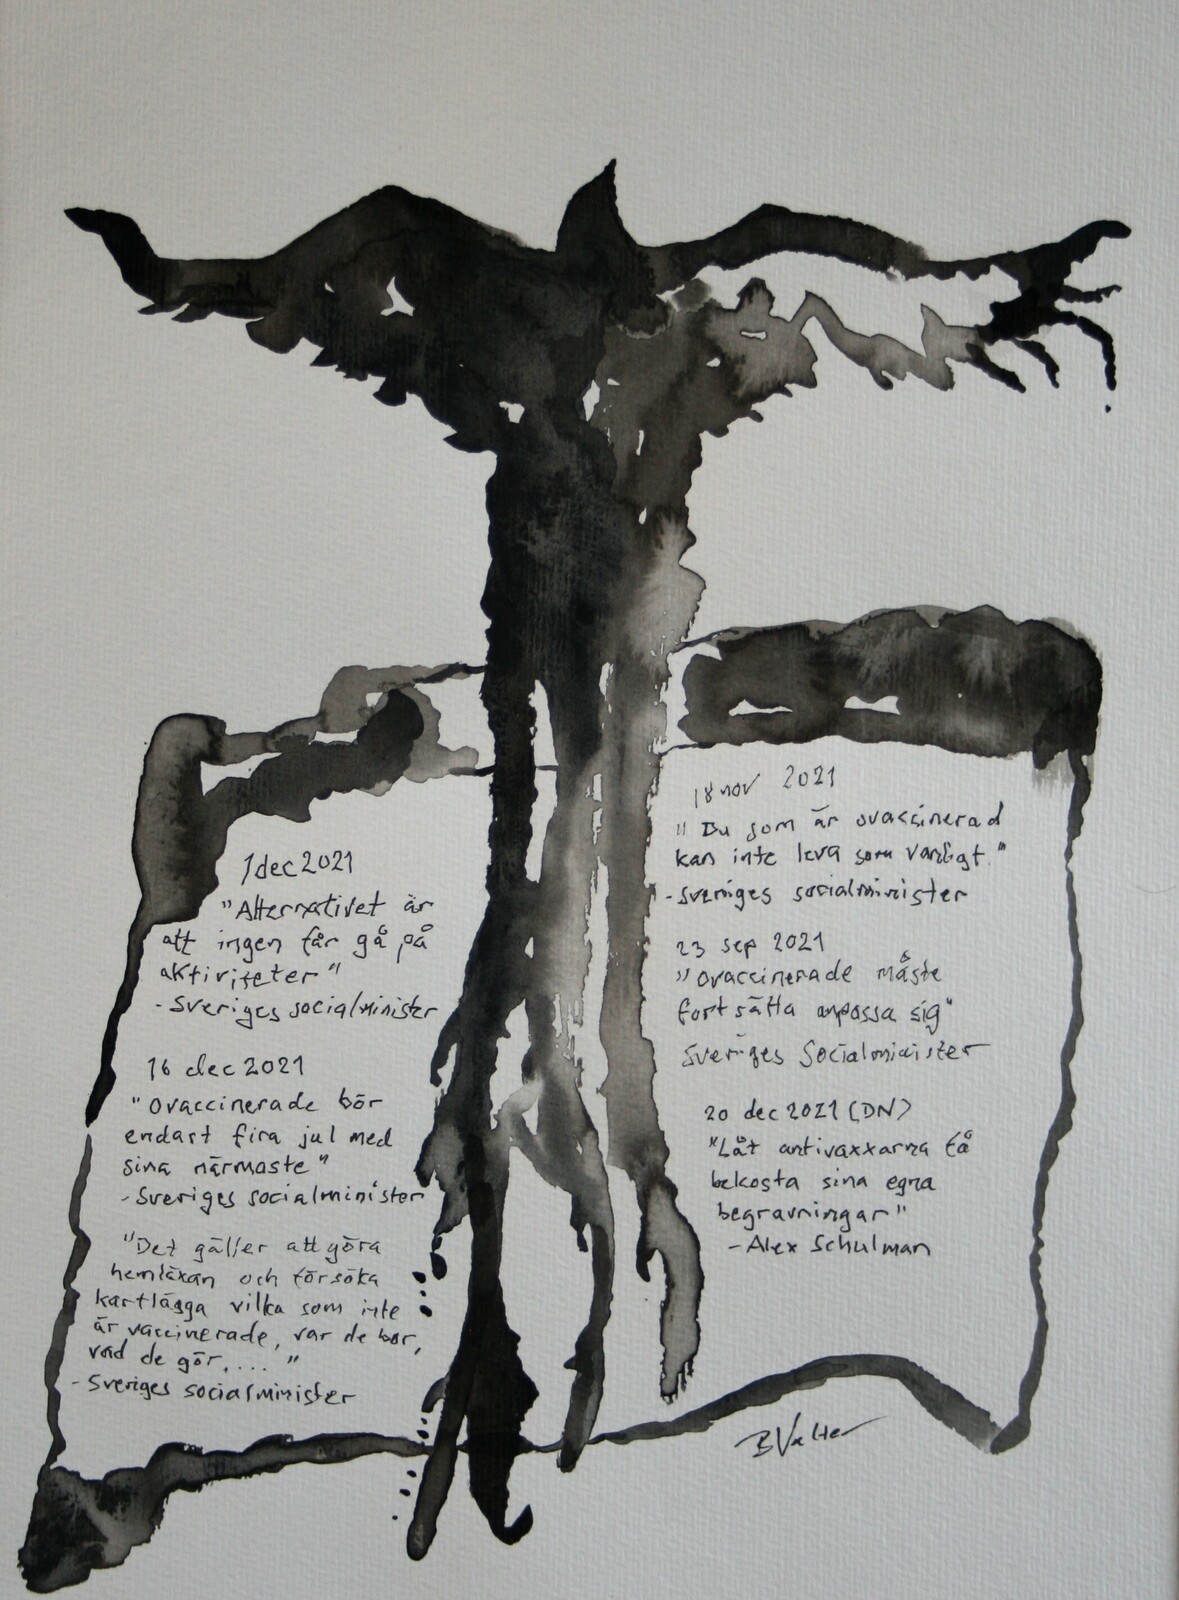 1 dec 2021
"Alternativet är
att ingen får gå på
aktiviteter"
- Sveriges socialminister
16 dec 2021
"Ovaccinerade bör
endast fira jul med
sina närmaste"
- Sveriges socialminister
"Det gäller att göra
hemläxan och försöka
kartlägga vilka som inte
är vaccinerade, var de bor,
vad de gör.... "
- Sveriges socialminister
18 nov 2021
"Du som är ovaccinerad
kan inte leva som vanligt."
- Sveriges socialminister
23 sep 2021
"Ovaccinerade måste
fortsätta anpassa sig"
Sveriges Socialminister
20 dec 2021 (DN)
"Låt antivaxxarna få
bekosta sina egna
begravningar"
- Alex Schulman